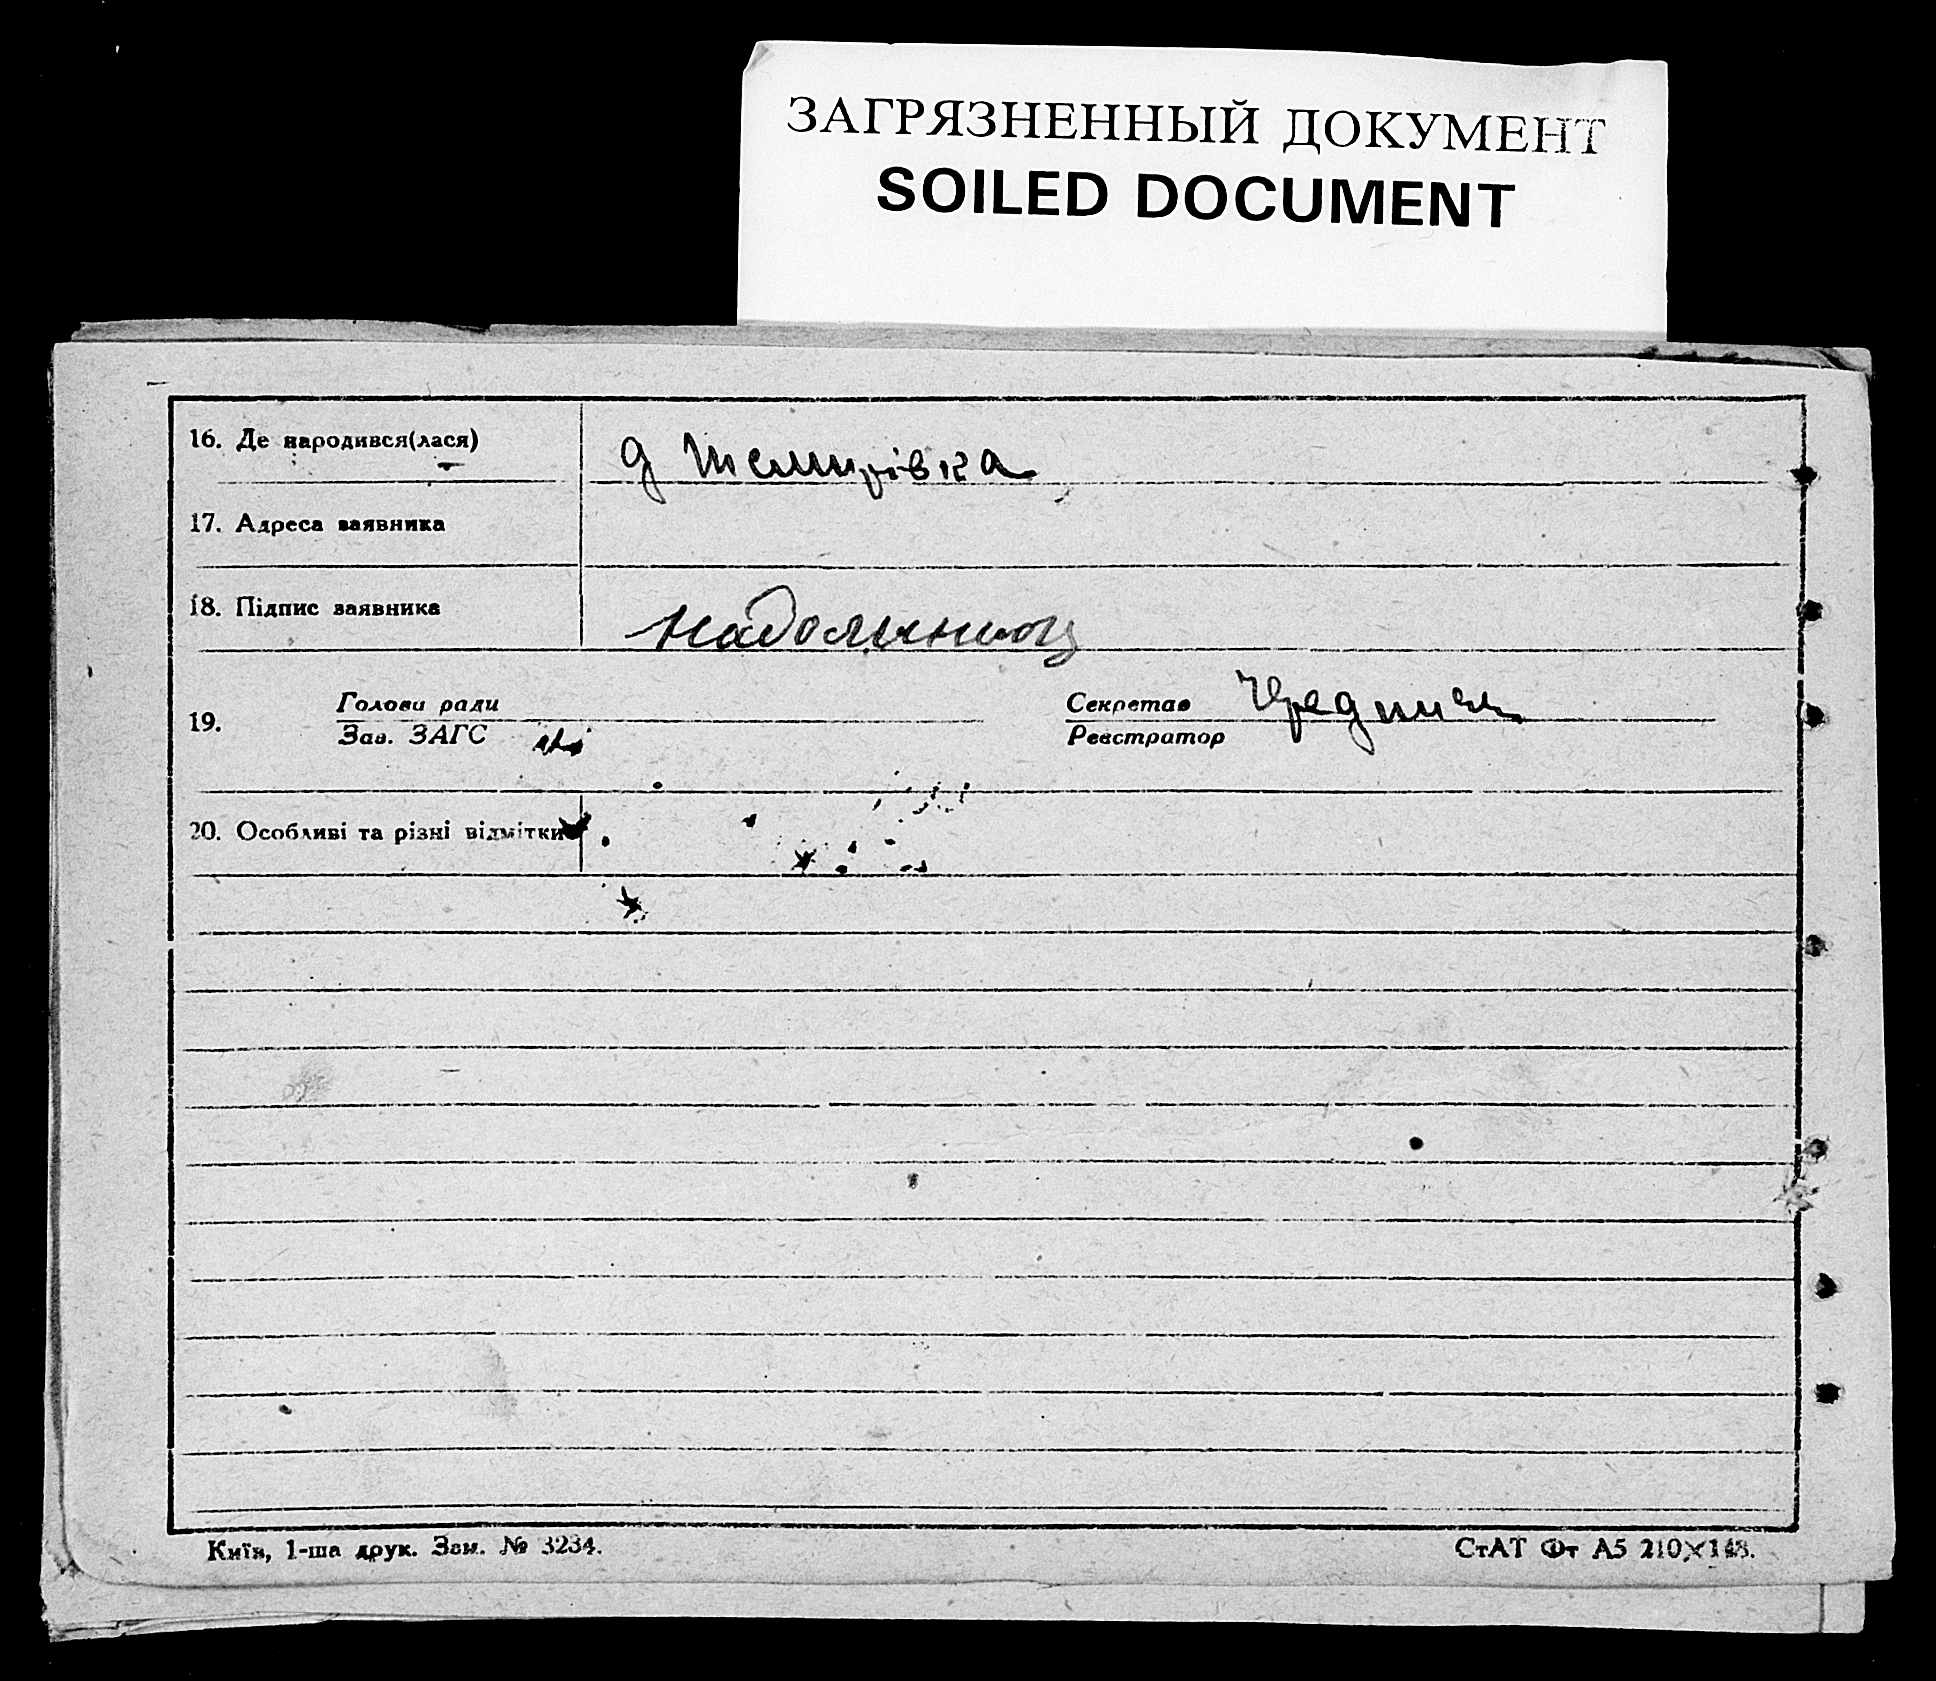 ЗАГРЯЗНЕННЫЙ ДОКУМЕНТ
SOILED DOCUMENT
16. Де народився(лася)
д
17. Адреса заявника
18. Підпис заявника
19. Голови ради
Зав. ЗАГС
Секретар
Реєстратор
20. Особливі та різні відмітки
Київ, 1-ша друк. Зам. № 3234.
СтАТ Фт А5 210×148.